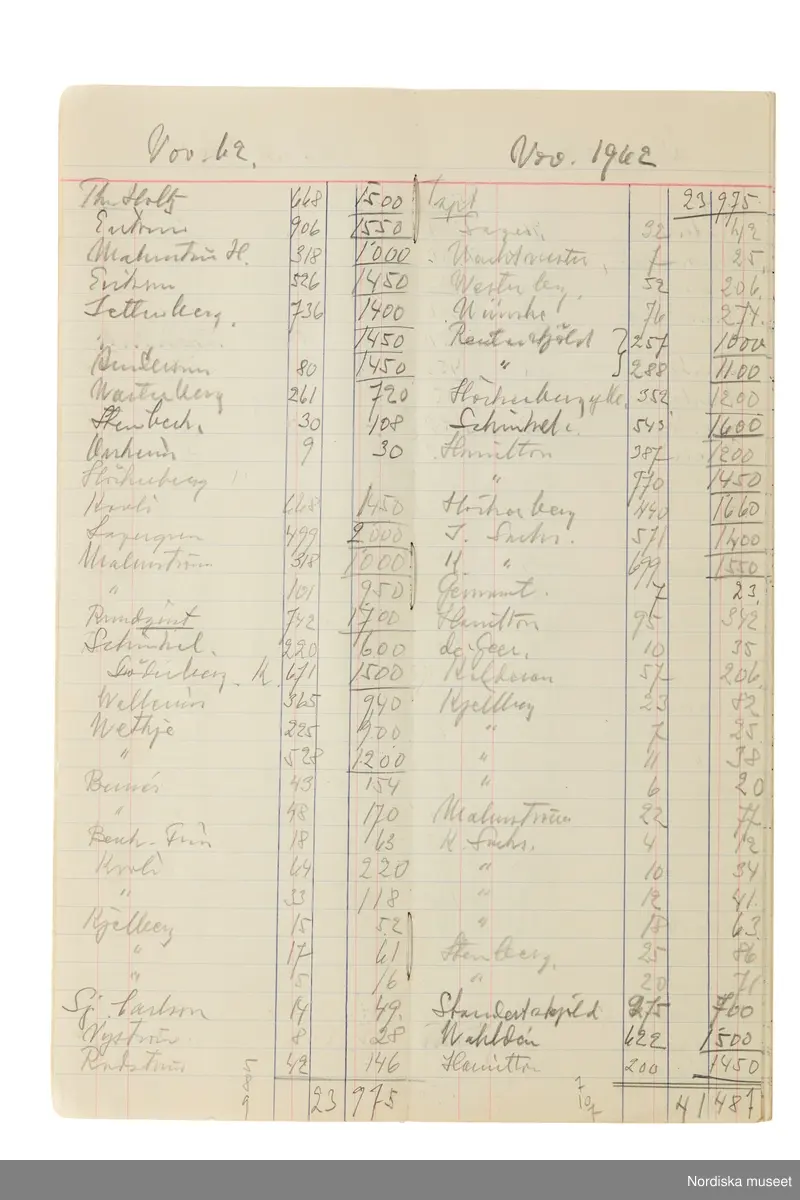 Nov. 62.
Holtz 668 1500
906 1550
Malmström H. 318 1000
Erikson 526 1450
Setterberg. 736 1400
1450
80 1450
Westerberg 261 720
Stenbeck. 30 108
9 30
Höckerberg
668 1450
Lagergren 499 2000
Malmström 318 1000
" 101 950
Rundqvist 742 1700
Schinkel. 220 600
Söderberg. K. 671 1500
Wellenius 365 940
Wethje 225 900
" 528 1200
43 154
" 48 170
Beck-Friis 18 63
64 220
" 33 118
Kjellberg 15 52
" 17 61
" 5 16
Sj. Carlson 14 49.
Nyström 8 28
Rudström 42 146
23 975
Nov. 1962
23 975
32 42
Wachtmeister 7 25.
Westerberg. 52 206.
76 274.
Reuterskjöld 257 1000
" 288 1100
352 1200
Schinkel. 543 1600
Hamilton 387 1200
" 770 1450
Höckerberg 440 1660
J. Sachs. 571 1400
K " 699 1550
7 23.
Hamilton 95 342
de Geer. 10 35
57 206.
Kjellberg 23 82
" 7 25
" 11 38
" 6 20
Malmström 22 77
K. Sachs. 4 12
" 10 34
" 12 41.
" 18 63
Stenberg. 25 86
" 20 71
Standertskjöld 275 700
Wahldén 622 1500
Hamilton 200 1450
41 487
Nordiska museet